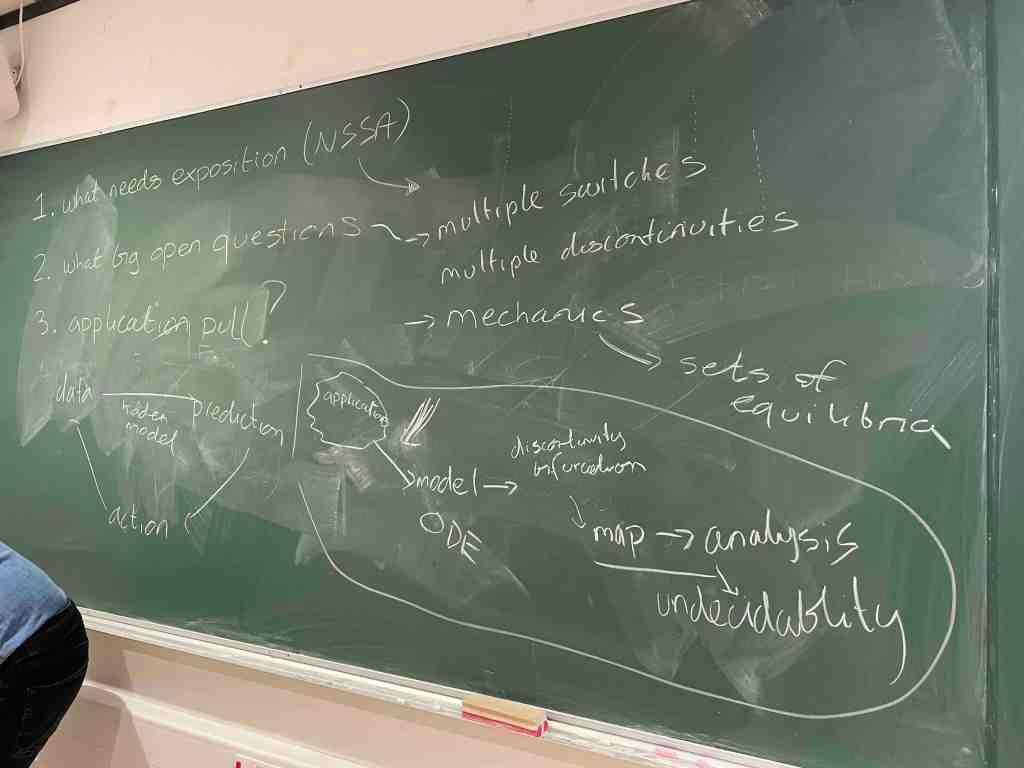 1. what needs exposition (NSSA)
2. what big open questions → multiple switches
multiple discontinuities
3. application pull?
→ mechanics
sets of
equilibria
data → prediction
hidden
model
action
application
model →
ODE
discontinuity
bifurcation
map → analysis
undecidablity